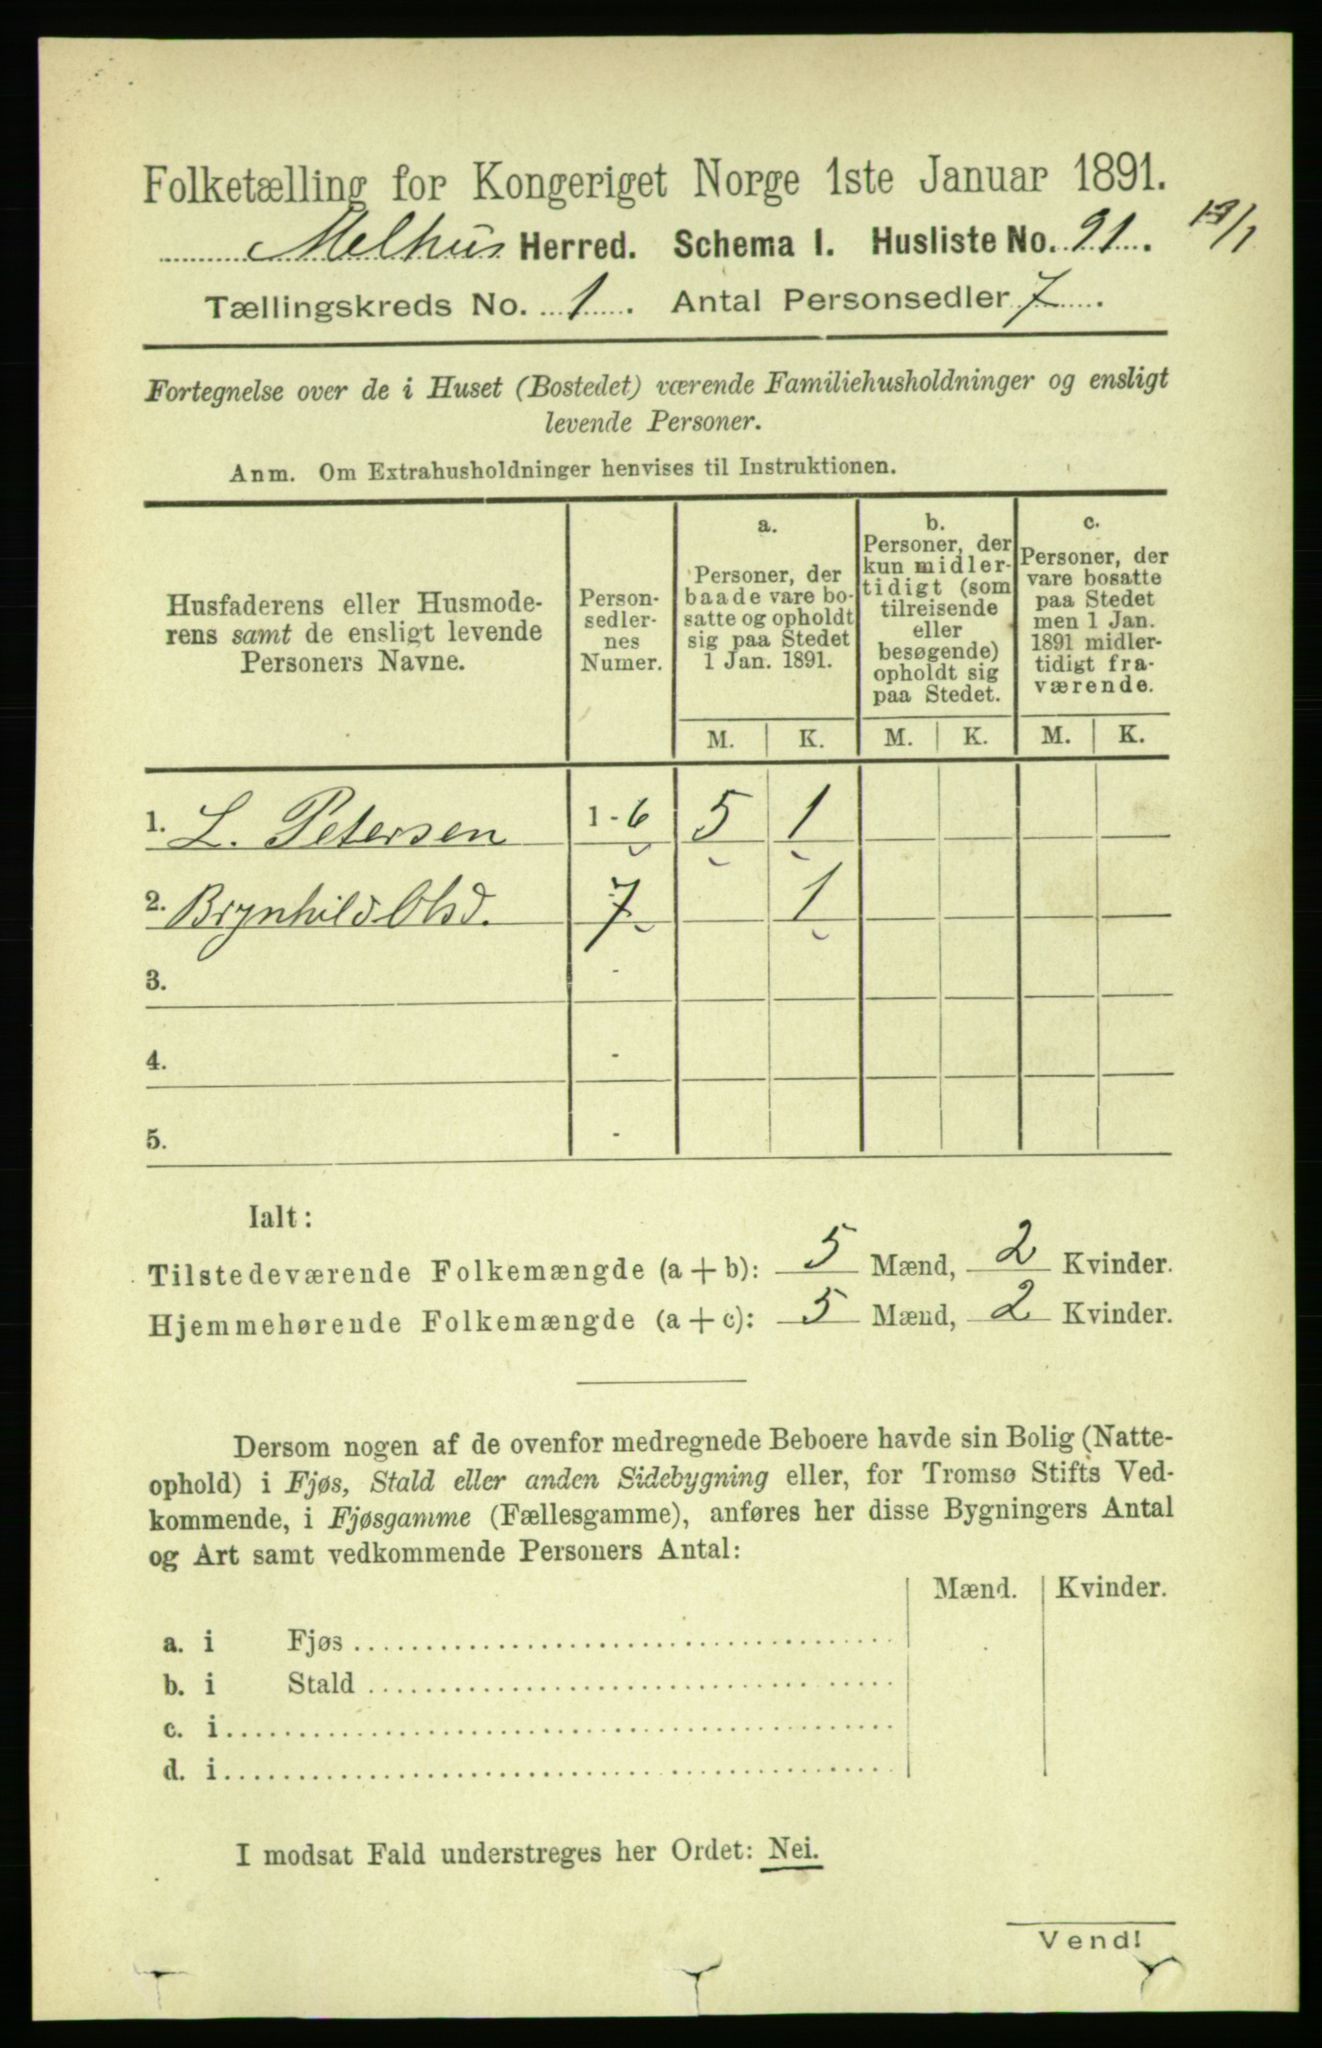 Folketælling for Kongeriget Norge 1ste Januar 1891.
Melhus Herred. Schema 1. Husliste No. 91. 19/1
Tællingskreds No. 1. Antal Personsedler 7.
Fortegnelse over de i Huset (Bostedet) værende Familiehusholdninger og ensligt
levende Personer.
Anm. Om Extrahusholdninger henvises til Instruktionen.
Husfaderens eller Husmode-
rens samt de ensligt levende
Personers Navne.
Person-
sedler-
nes
Numer.
a.
Personer, der
baade vare bo-
satte og opholdt
sig paa Stedet
1 Jan. 1891.
b.
Personer, der
kun midler-
tidigt (som
tilreisende
eller
besøgende)
opholdt sig
paa Stedet.
c.
Personer, der
vare bosatte
paa Stedet
men 1 Jan.
1891 midler-
tidigt fra-
værende.
M. K. M. K. M. K.
1. L. Petersen 1-6 5 1
2. Brynhild Olsd. 7 1
3. -
4. -
5. -
Ialt:
Tilstedeværende Folkemængde (a + b): 5 Mænd, 2 Kvinder.
Hjemmehørende Folkemængde (a + c): 5 Mænd, 2 Kvinder.
Dersom nogen af de ovenfor medregnede Beboere havde sin Bolig (Natte-
ophold) i Fjøs, Stald eller anden Sidebygning eller, for Tromsø Stifts Ved-
kommende, i Fjøsgamme (Fællesgamme), anføres her disse Bygningers Antal
og Art samt vedkommende Personers Antal:
Mænd. Kvinder.
a. i Fjøs
b. i Stald
c. i
d. i
I modsat Fald understreges her Ordet: Nei.
Vend!